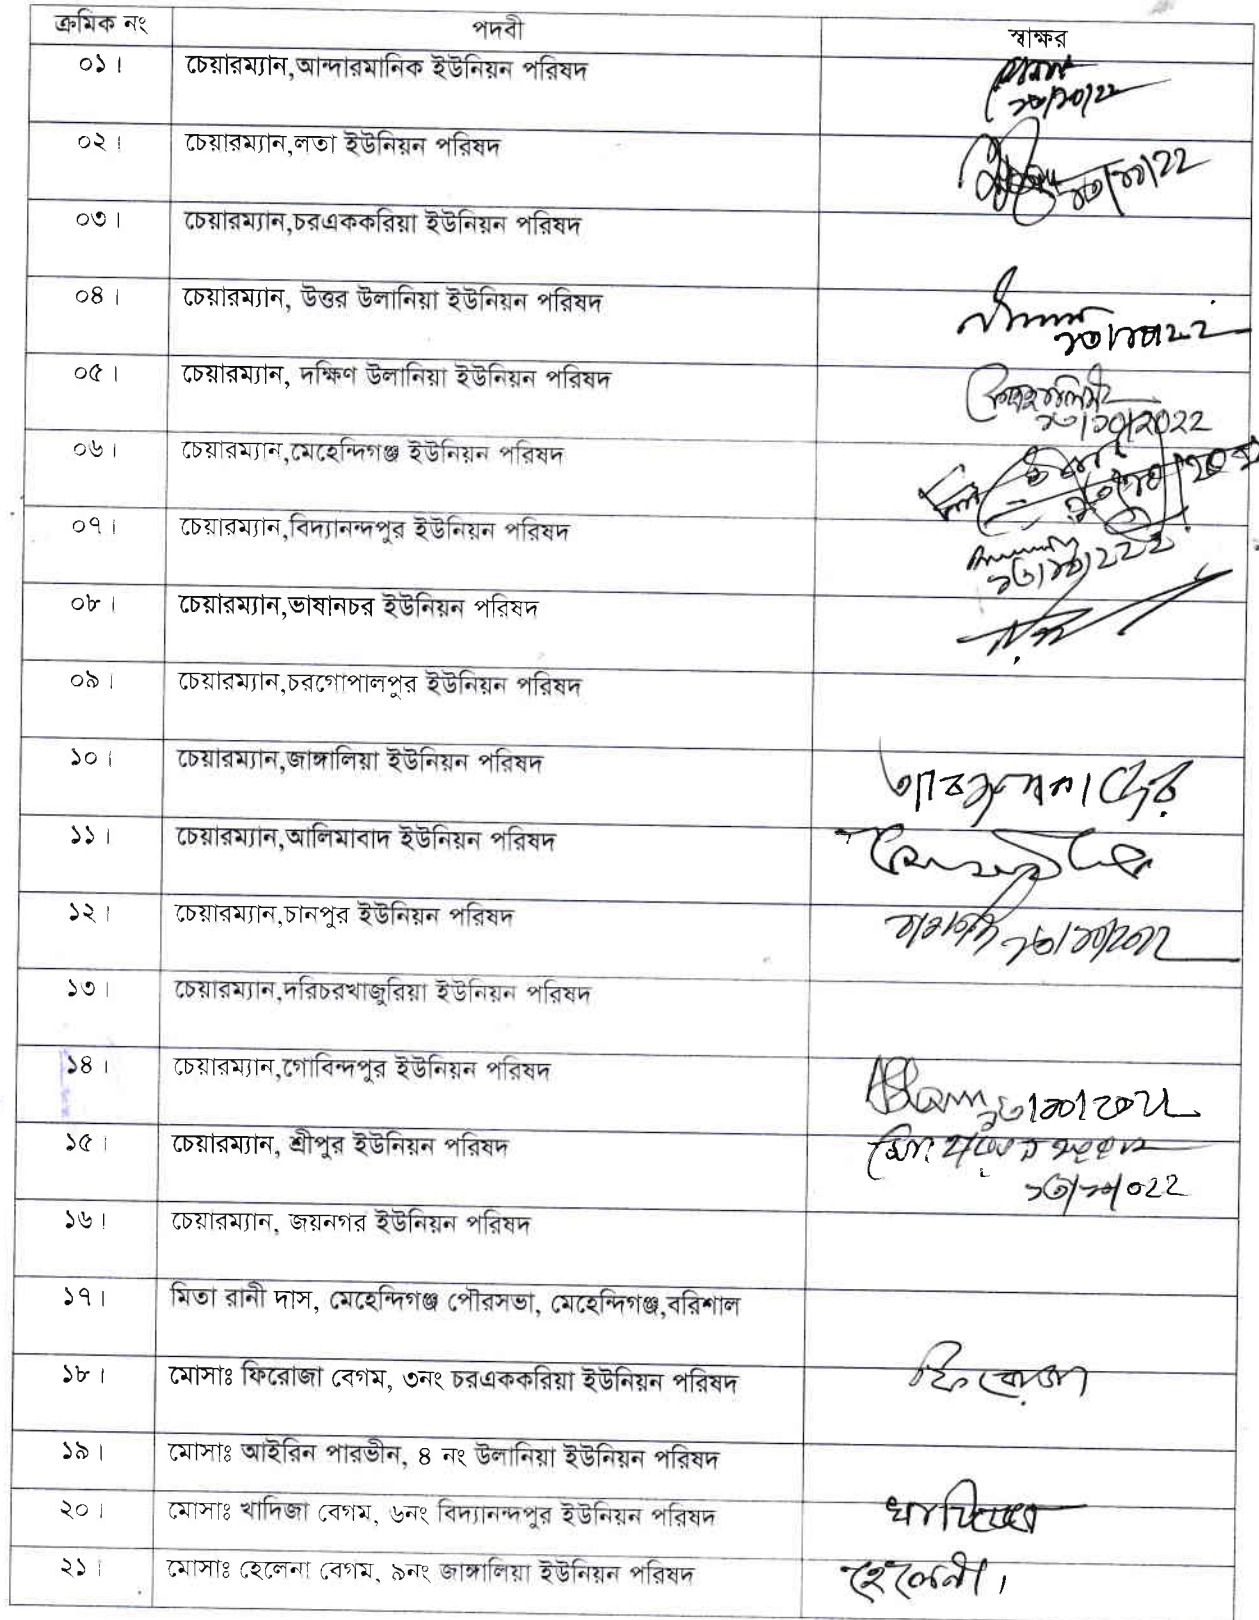 ক্রমিক নং পদবী স্বাক্ষর
০১। চেয়ারম্যান,আন্দারমানিক ইউনিয়ন পরিষদ
০২। চেয়ারম্যান,লতা ইউনিয়ন পরিষদ
০৩। চেয়ারম্যান,চরএককরিয়া ইউনিয়ন পরিষদ
০৪। চেয়ারম্যান, উত্তর উলানিয়া ইউনিয়ন পরিষদ
০৫। চেয়ারম্যান, দক্ষিণ উলানিয়া ইউনিয়ন পরিষদ
১৩/১০/২০২২
০৬। চেয়ারম্যান,মেহেন্দিগঞ্জ ইউনিয়ন পরিষদ
০৭। চেয়ারম্যান,বিদ্যানন্দপুর ইউনিয়ন পরিষদ
০৮। চেয়ারম্যান,ভাষানচর ইউনিয়ন পরিষদ
০৯। চেয়ারম্যান,চরগোপালপুর ইউনিয়ন পরিষদ
১০। চেয়ারম্যান,জাঙ্গালিয়া ইউনিয়ন পরিষদ
১১। চেয়ারম্যান,আলিমাবাদ ইউনিয়ন পরিষদ
১২। চেয়ারম্যান,চানপুর ইউনিয়ন পরিষদ ১৩/১০/২০২২
১৩। চেয়ারম্যান,দরিচরখাজুরিয়া ইউনিয়ন পরিষদ
১৪। চেয়ারম্যান,গোবিন্দপুর ইউনিয়ন পরিষদ ১৩/১০/২০২২
১৫। চেয়ারম্যান, শ্রীপুর ইউনিয়ন পরিষদ
১৬। চেয়ারম্যান, জয়নগর ইউনিয়ন পরিষদ
১৭। মিতা রানী দাস, মেহেন্দিগঞ্জ পৌরসভা, মেহেন্দিগঞ্জ,বরিশাল
১৮। মোসাঃ ফিরোজা বেগম, ৩নং চরএককরিয়া ইউনিয়ন পরিষদ ফিরোজা
১৯। মোসাঃ আইরিন পারভীন, ৪ নং উলানিয়া ইউনিয়ন পরিষদ
২০। মোসাঃ খাদিজা বেগম, ৬নং বিদ্যানন্দপুর ইউনিয়ন পরিষদ
২১। মোসাঃ হেলেনা বেগম, ৯নং জাঙ্গালিয়া ইউনিয়ন পরিষদ হেলেনী।